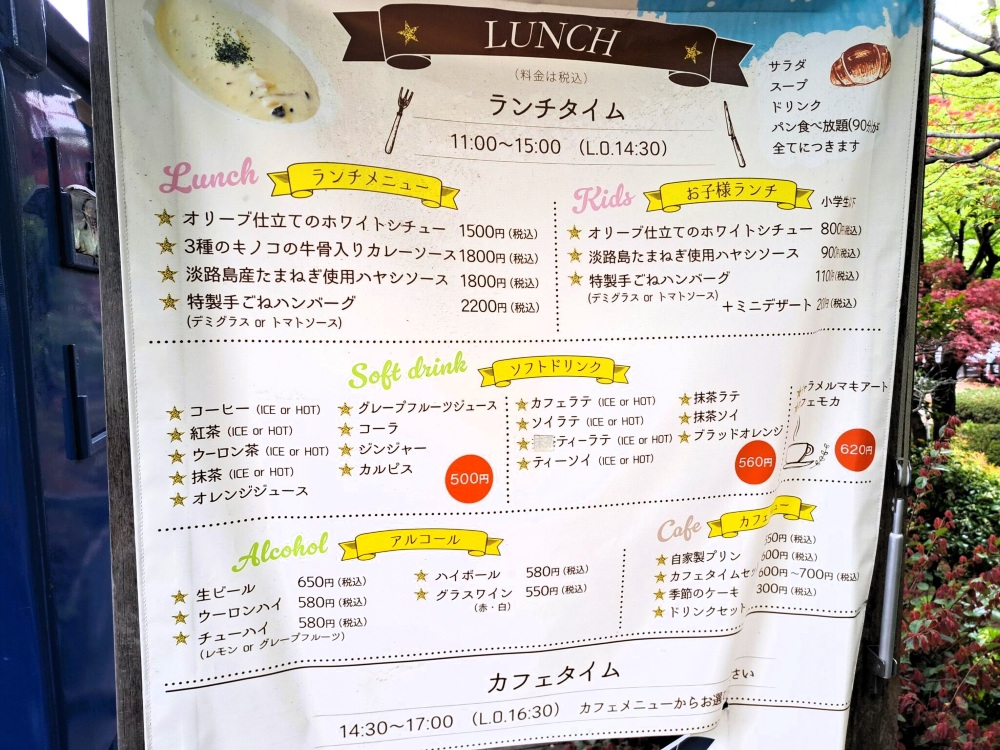 LUNCH
(料金は税込)
ランチタイム
11:00〜15:00 (L.O.14:30)
サラダ
スープ
ドリンク
パン食べ放題(90分)
全てにつきます
Lunch ランチメニュー
オリーブ仕立てのホワイトシチュー 1500円(税込)
3種のキノコの牛骨入りカレーソース 1800円(税込)
淡路島産たまねぎ使用ハヤシソース 1800円(税込)
特製手ごねハンバーグ 2200円(税込)
(デミグラス or トマトソース)
Kids お子様ランチ 小学生
オリーブ仕立てのホワイトシチュー 800円(税込)
淡路島たまねぎ使用ハヤシソース 900円(税込)
特製手ごねハンバーグ (税込)
(デミグラス or トマトソース)
+ミニデザート (税込)
Soft drink ソフトドリンク
コーヒー (ICE or HOT)
紅茶 (ICE or HOT)
ウーロン茶 (ICE or HOT)
抹茶 (ICE or HOT)
オレンジジュース
グレープフルーツジュース
コーラ
ジンジャー
カルピス
500円
カフェラテ (ICE or HOT)
ソイラテ (ICE or HOT)
ティーラテ (ICE or HOT)
ティーソイ (ICE or HOT)
抹茶ラテ
抹茶ソイ
ブラッドオレンジ
560円
ラメルマキアート
フェモカ
620円
Alcohol アルコール
生ビール 650円(税込)
ウーロンハイ 580円(税込)
チューハイ 580円(税込)
(レモン or グレープフルーツ)
ハイボール 580円(税込)
グラスワイン 550円(税込)
(赤・白)
Cafe カフェ
自家製プリン 50円(税込)
カフェタイムセッ 600円(税込)
季節のケーキ 600円〜700円(税込)
ドリンクセット 300円(税込)
カフェタイム
14:30〜17:00 (L.O.16:30) カフェメニューからお選
さい